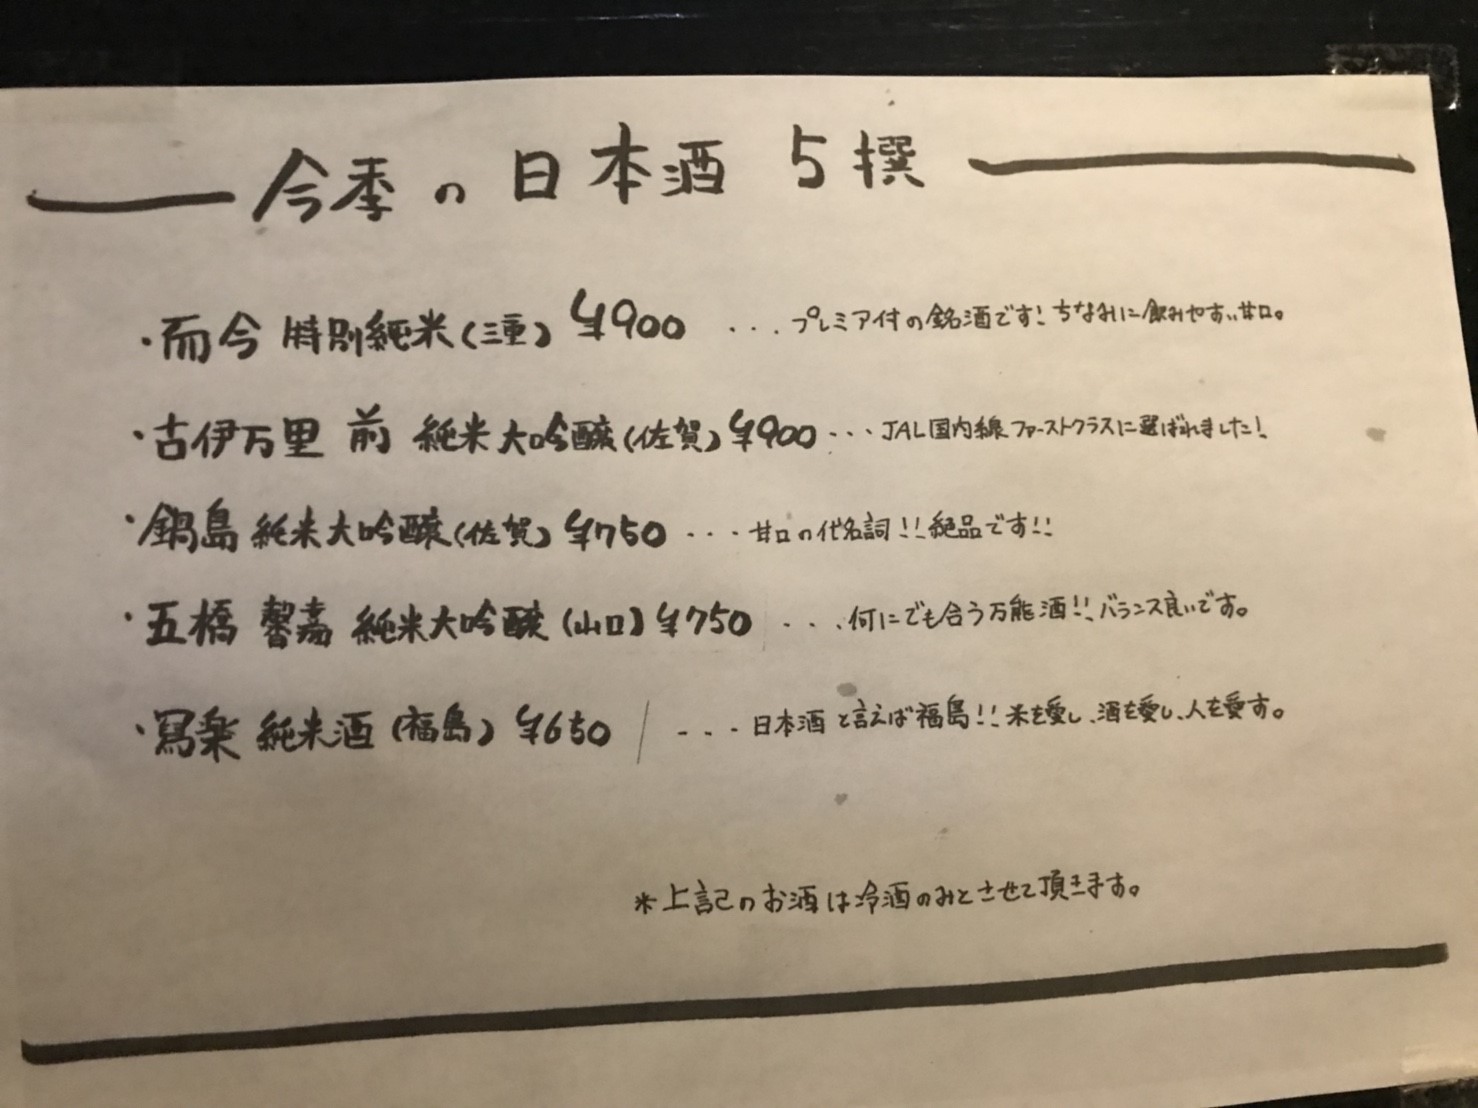 今季の日本酒 5撰
・而今 特別純米(三重) ¥900 ...プレミア付の銘酒です!ちなみに飲みやすい甘口。
・古伊万里 前 純米大吟醸(佐賀) ¥900...JAL国内線ファーストクラスに選ばれました!
・鍋島 純米大吟醸(佐賀) ¥750 ...甘口の代名詞!!絶品です!!
・五橋 馨嘉 純米大吟醸(山口) ¥750 ...何にでも合う万能酒!!バランス良いです。
・冩楽 純米酒(福島) ¥650 ...日本酒と言えば福島!!米を愛し、酒を愛し、人を愛す。
*上記のお酒は冷酒のみとさせて頂きます。